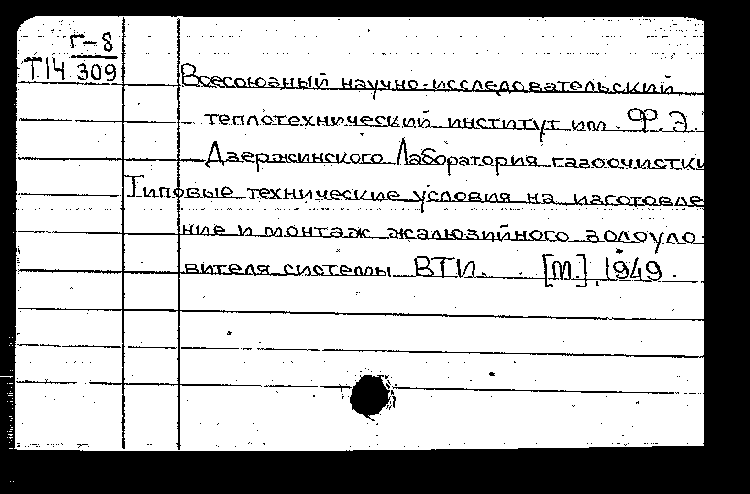 Г-8
Т14 309
Всесоюзный научно-исследовательский
теплотехнический институт им. Ф.Э.
Дзержинского Лаборатория газоочистки
Типовые технические условия на изготовле
ние и монтаж жалюзийного золоуло-
вителя системы ВТИ. [М.], 1949.